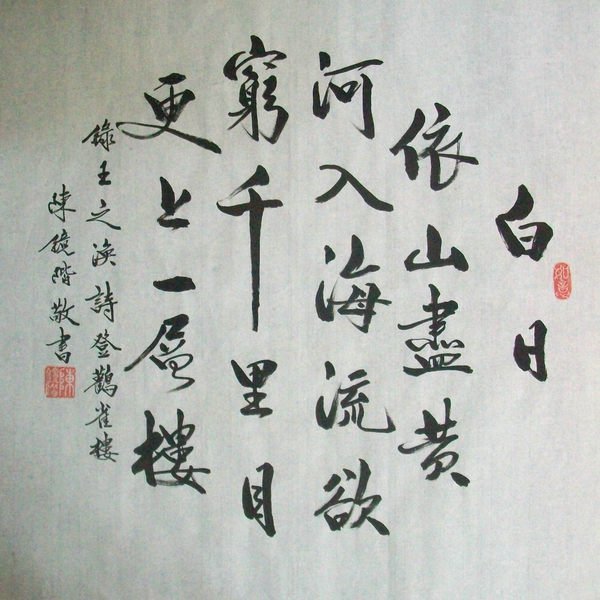 白日
依山盡黄
河入海流欲
窮千里目
更上一層樓
錄王之渙詩登鸛雀樓
陳鏡階敬書